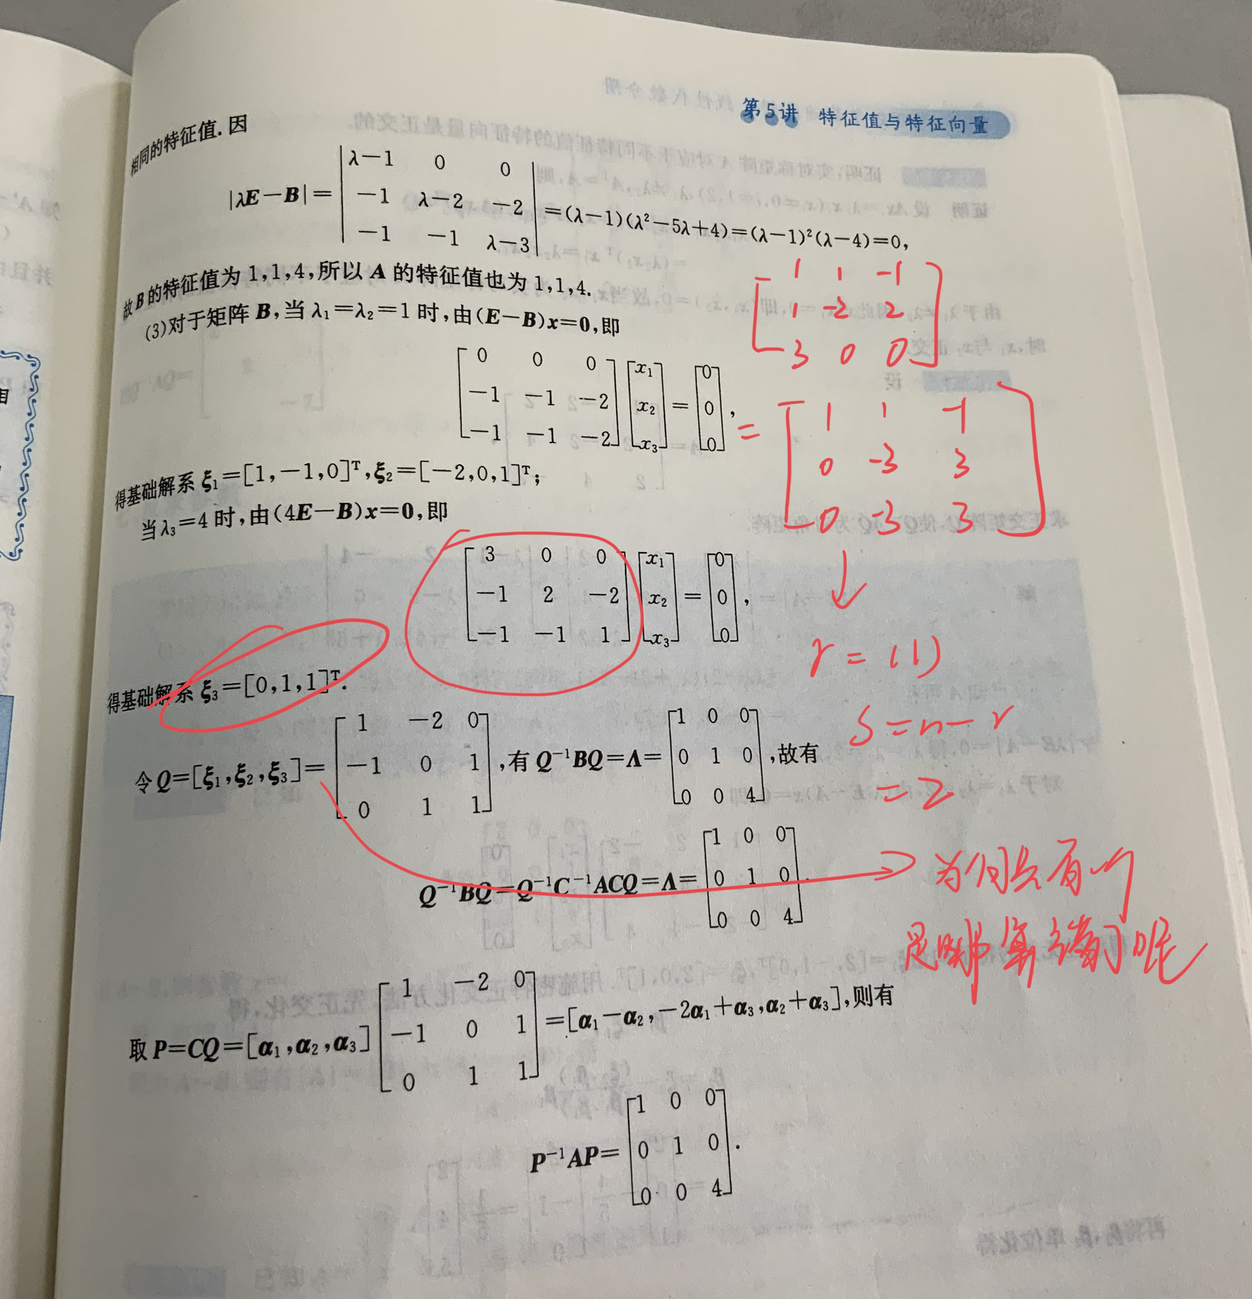 第5讲 特征值与特征向量
相同的特征值.因
|λE-B|= | λ-1 0 0 |
| -1 λ-2 -2 | =(λ-1)(λ²-5λ+4)=(λ-1)²(λ-4)=0,
| -1 -1 λ-3 |
故B的特征值为1,1,4,所以A的特征值也为1,1,4.
(3)对于矩阵B,当λ₁=λ₂=1时,由(E-B)x=0,即
[ 0 0 0 ] [x₁] [0]
[ -1 -1 -2 ] [x₂] = [0],
[ -1 -1 -2 ] [x₃] [0]
得基础解系ξ₁=[1,-1,0]ᵀ,ξ₂=[-2,0,1]ᵀ;
当λ₃=4时,由(4E-B)x=0,即
[ 3 0 0 ] [x₁] [0]
[ -1 2 -2 ] [x₂] = [0],
[ -1 -1 1 ] [x₃] [0]
得基础解系ξ₃=[0,1,1]ᵀ.
令Q=[ξ₁,ξ₂,ξ₃]= [ 1 -2 0 ] [ 1 0 0 ]
[ -1 0 1 ],有Q⁻¹BQ=Λ= [ 0 1 0 ],故有
[ 0 1 1 ] [ 0 0 4 ]
[ 1 0 0 ]
Q⁻¹BQ=Q⁻¹C⁻¹ACQ=Λ= [ 0 1 0 ].
[ 0 0 4 ]
取P=CQ=[α₁,α₂,α₃] [ 1 -2 0 ]
[ -1 0 1 ] =[α₁-α₂,-2α₁+α₃,α₂+α₃],则有
[ 0 1 1 ]
[ 1 0 0 ]
P⁻¹AP= [ 0 1 0 ].
[ 0 0 4 ]
[ 1 1 -1 ]
[ 1 -2 2 ]
[ 3 0 0 ]
= [ 1 1 -1 ]
[ 0 -3 3 ]
[ 0 -3 3 ]
↓
r=(1)
S=n-r
=2
→ 为何只有一个
是哪算错了呢